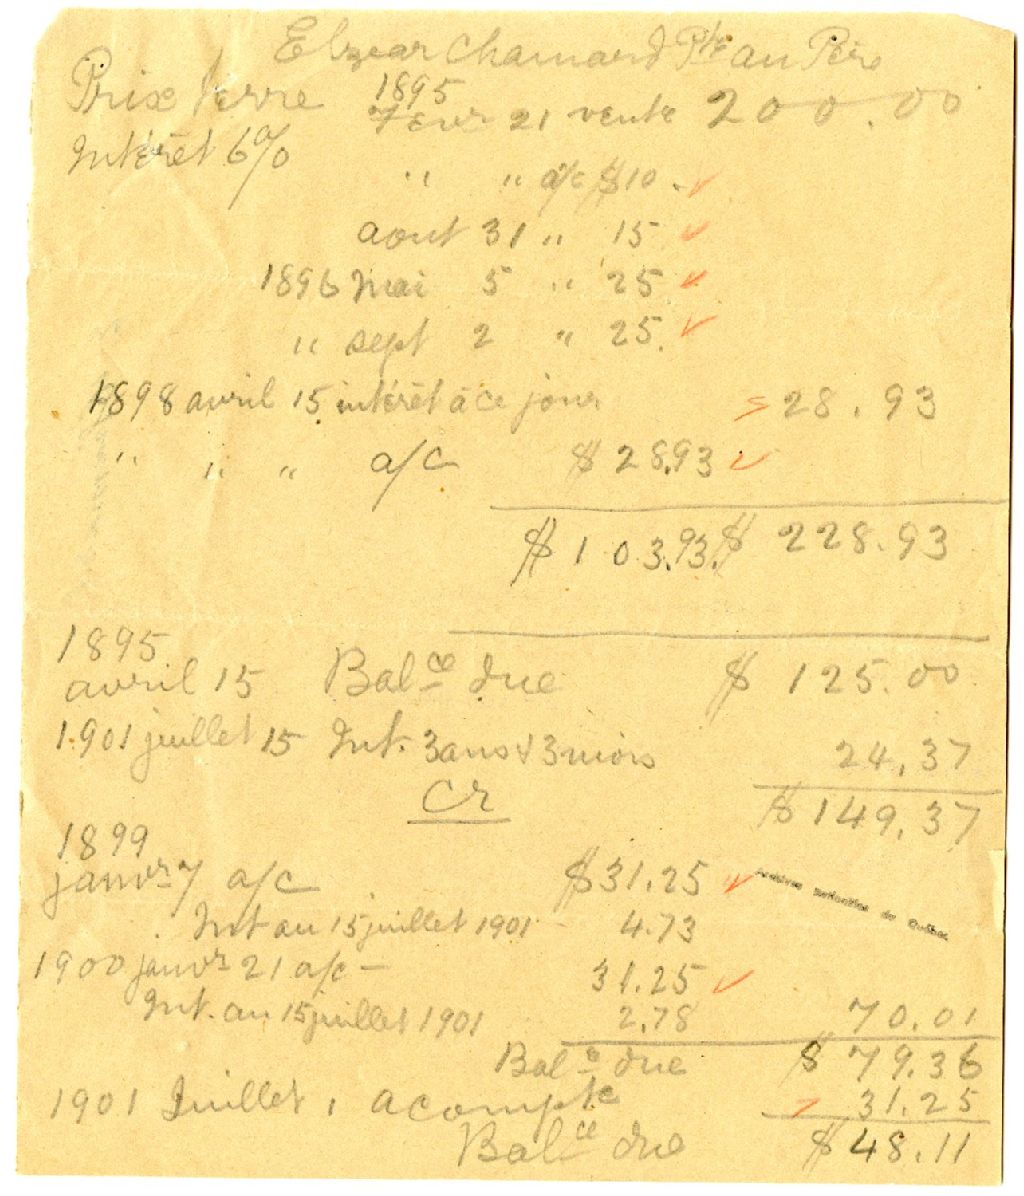 Elzear Chamard Pte au Père
Prix terre 1895
Fevr 21 vente 200.00
Intérêt 6%
" " a/c $10.
aout 31 " 15
1896 Mai 5 " 25
" sept 2 " 25.
1898 avril 15 intérêt à ce jour 28.93
" " " a/c $28.93
$103.93. $228.93
1895
avril 15 Balce due $125.00
1901 juillet 15 Int. 3 ans & 3 mois 24,37
Cr $149,37
1899
janvr 7 a/c $31.25
Archives Nationales du Québec
Int au 15 juillet 1901 - 4.73
1900 janvr 21 a/c - 31.25
Int. au 15 juillet 1901 2,78 70.01
Balce due $79.36
1901 Juillet, acompte 31.25
Balce due $48.11